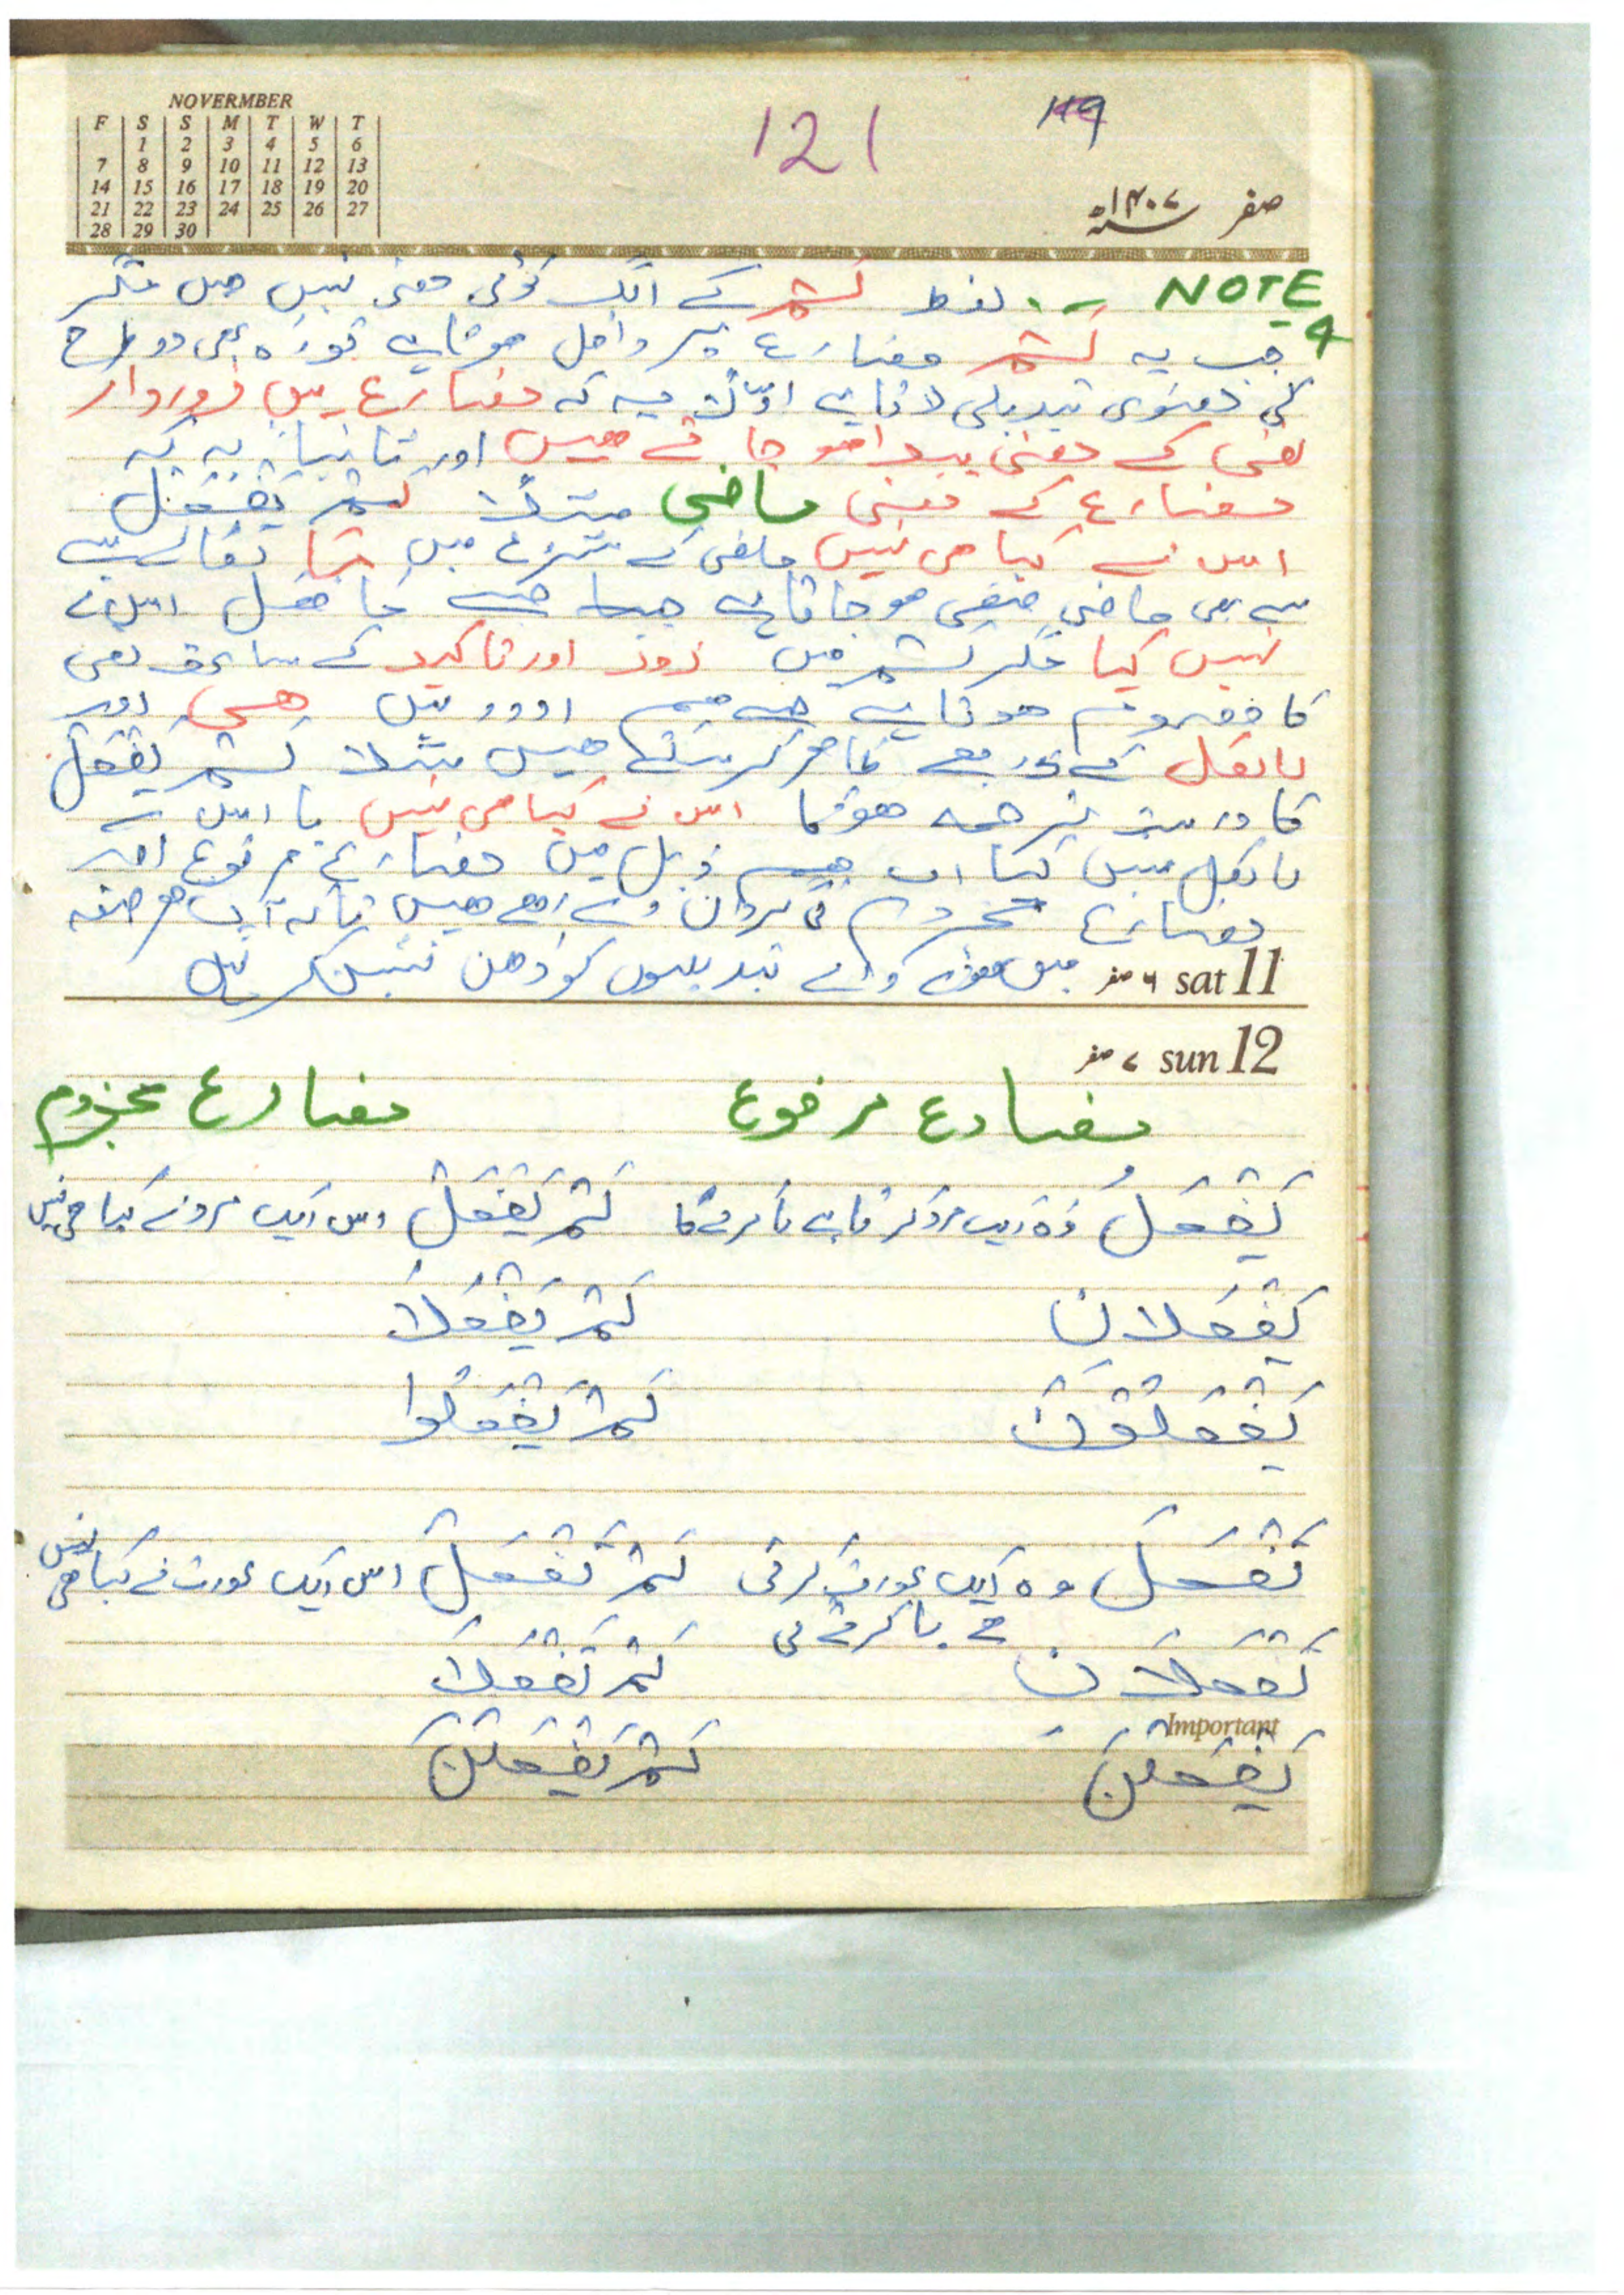 NOVERMBER
F S S M T W T
1 2 3 4 5 6
7 8 9 10 11 12 13
14 15 16 17 18 19 20
21 22 23 24 25 26 27
28 29 30
121
119
صفر ۱۴۰۷
NOTE لفظ لَمْ کے الگ کوئی معنی نہیں ھیں مگر
جب یہ لَمْ مضارع پر داخل ھوتا ہے تو وہ بھی دو طرح
کی معنوی تبدیلی لاتا ہے اوّلاً یہ کہ مضارع میں زوردار
نفی کے معنی پیدا ھو جاتے ھیں اور ثانیاً یہ کہ
مضارع کے معنی ماضی مثلاً لَمْ یَفْعَلْ
اس نے کیا ھی نہیں ماضی کے شروع میں مَا لگانے
سے بھی ماضی منفی ھو جاتا ہے جیسے مَا فَعَلَ اس نے
نہیں کیا مگر لَمْ میں زور اور تاکید کے ساتھ نفی
کا مفہوم ھوتا ہے جسے ھم اردو میں ھی اور
بالکل کے ذریعے ظاھر کر سکتے ھیں مثلاً لَمْ یَفْعَلْ
کا درست ترجمہ ھوگا اس نے کیا ھی نہیں یا اس نے
بالکل نہیں کیا اب ذیل میں مضارع مرفوع اور
مضارع مجزوم کی گردان دے رھے ھیں تاکہ آپ ھر صیغہ
میں ھونے والی تبدیلیوں کو ذھن نشین کر لیں
۶ صفر sat 11
۷ صفر sun 12
مضارع مرفوع مضارع مجزوم
یَفْعَلُ وہ ایک مرد کرتا ہے یا کرے گا لَمْ یَفْعَلْ اس ایک مرد نے کیا ھی نہیں
یَفْعَلَانِ لَمْ یَفْعَلَا
یَفْعَلُوْنَ لَمْ یَفْعَلُوا
تَفْعَلُ وہ ایک عورت کرتی لَمْ تَفْعَلْ اس ایک عورت نے کیا ھی نہیں
ہے یا کرے گی
تَفْعَلَانِ لَمْ تَفْعَلَا
Important
یَفْعَلْنَ لَمْ یَفْعَلْنَ